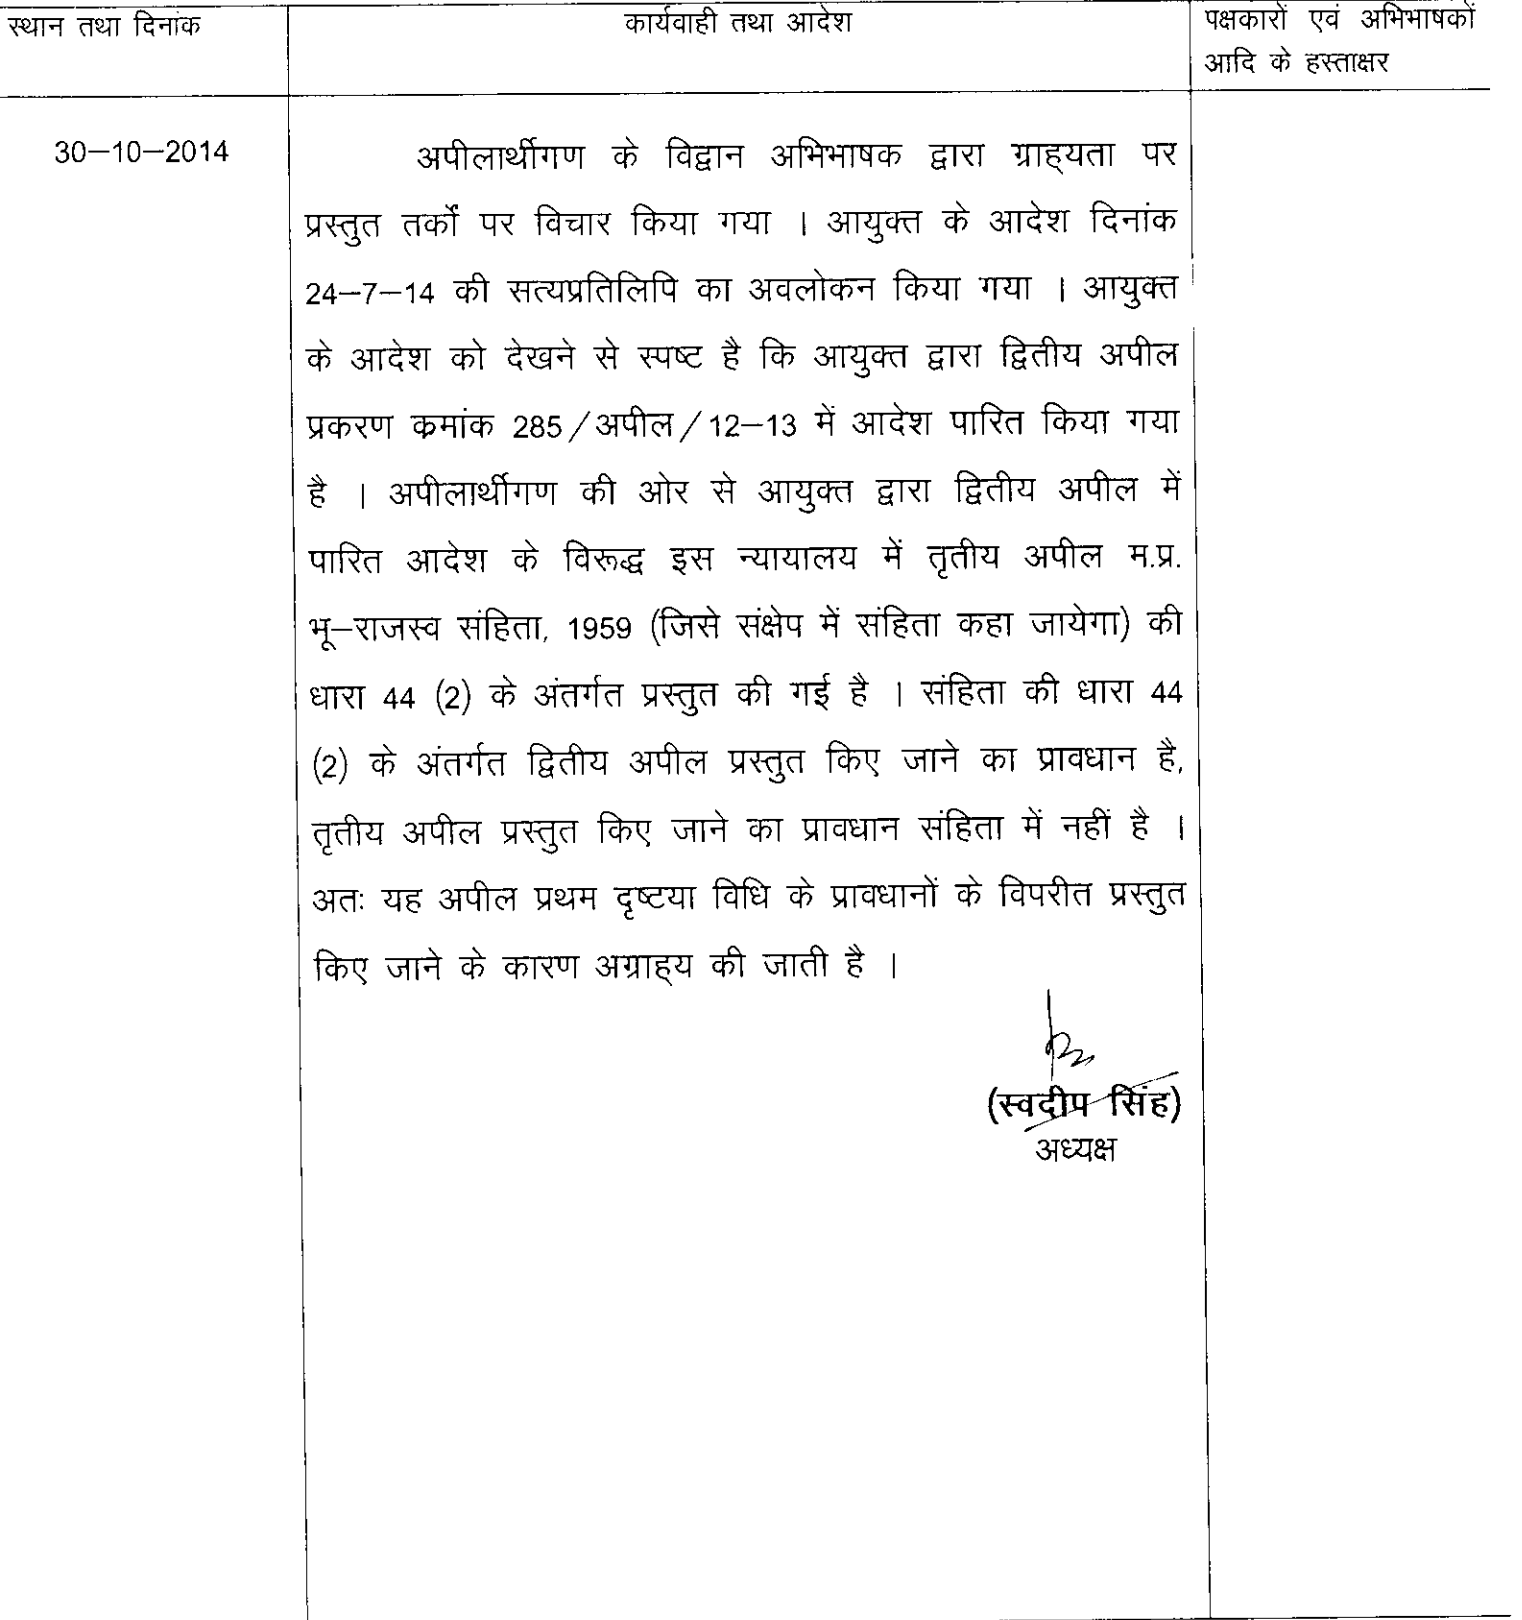 स्थान तथा दिनांक
कार्यवाही तथा आदेश
पक्षकारों एवं अभिभाषकों
आदि के हस्ताक्षर
30—10—2014
अपीलार्थीगण के विद्वान अभिभाषक द्वारा ग्राह्यता पर
प्रस्तुत तर्कों पर विचार किया गया । आयुक्त के आदेश दिनांक
24—7—14 की सत्यप्रतिलिपि का अवलोकन किया गया । आयुक्त
के आदेश को देखने से स्पष्ट है कि आयुक्त द्वारा द्वितीय अपील
प्रकरण क्रमांक 285/अपील/12—13 में आदेश पारित किया गया
है । अपीलार्थीगण की ओर से आयुक्त द्वारा द्वितीय अपील में
पारित आदेश के विरूद्ध इस न्यायालय में तृतीय अपील म.प्र.
भू—राजस्व संहिता, 1959 (जिसे संक्षेप में संहिता कहा जायेगा) की
धारा 44 (2) के अंतर्गत प्रस्तुत की गई है । संहिता की धारा 44
(2) के अंतर्गत द्वितीय अपील प्रस्तुत किए जाने का प्रावधान है,
तृतीय अपील प्रस्तुत किए जाने का प्रावधान संहिता में नहीं है ।
अतः यह अपील प्रथम दृष्टया विधि के प्रावधानों के विपरीत प्रस्तुत
किए जाने के कारण अग्राह्य की जाती है ।
(स्वदीप सिंह)
अध्यक्ष